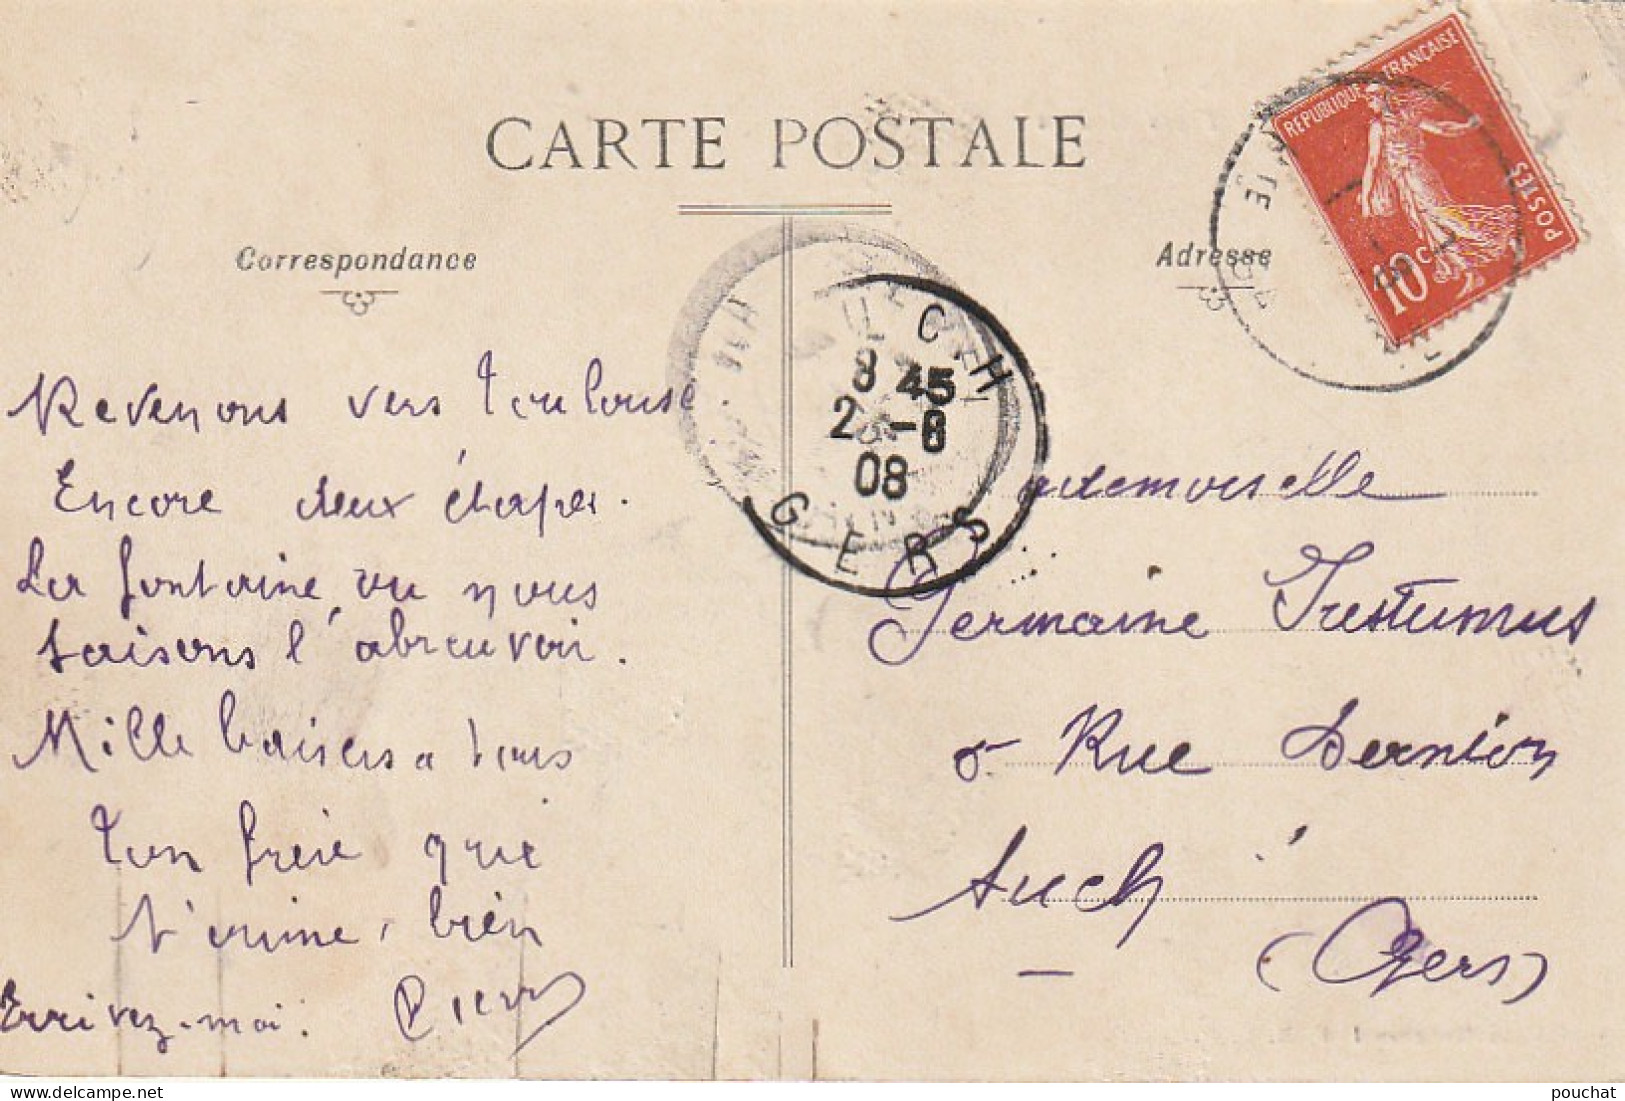 CARTE POSTALE
Correspondance
Revenons vers Toulouse.
Encore deux étapes.
La fontaine, où nous
faisons l'abreuvoir.
Mille baisers a tous
Ton frère qui
t'aime bien
Ecrivez-moi. Pierre
AUCH
8 45
2 -8
08
GERS
REPUBLIQUE FRANÇAISE
POSTES
10 c
Adresse
Mademoiselle
Germaine
Rue
Auch
(Gers)
pouchat